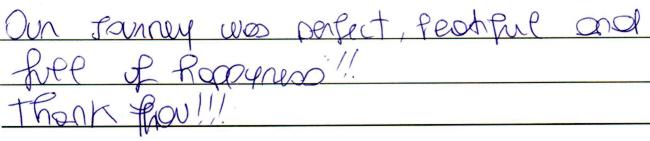 Our journey was perfect, peacefull and
full of happyness!!
Thank you!!!